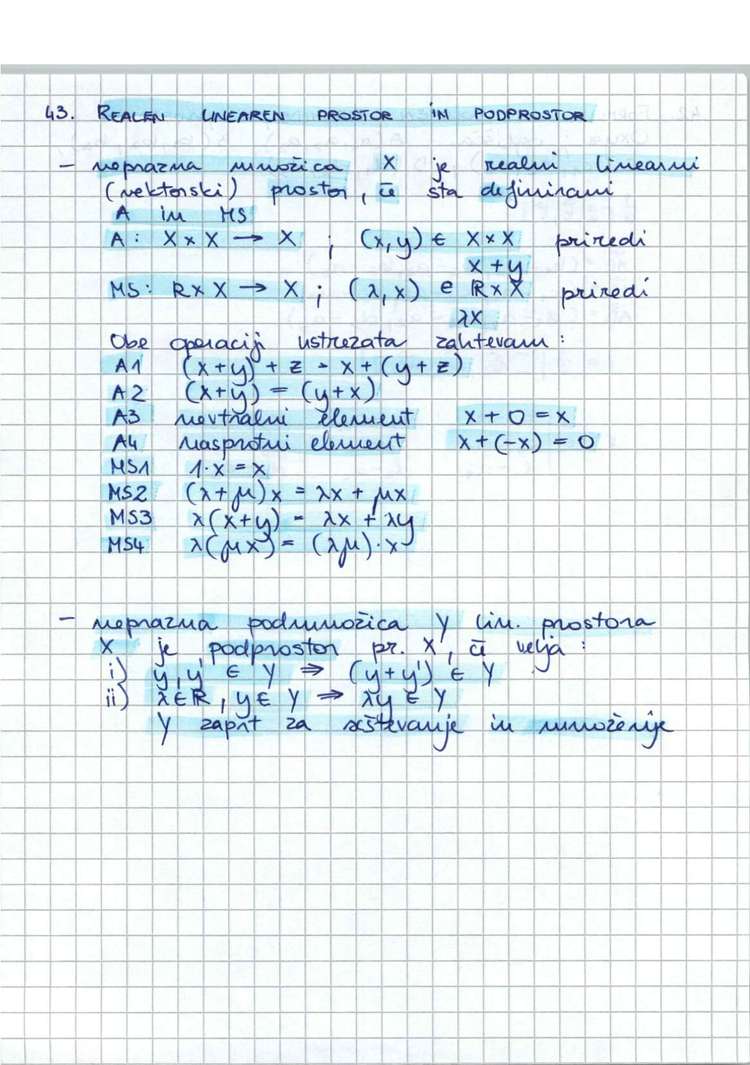 43. REALEN LINEAREN PROSTOR IN PODPROSTOR
- neprazna množica X je realni linearni
(vektorski) prostor, če sta definirani
A in MS
A: X x X → X ; (x,y) ∈ X x X priredi
x + y
MS: R x X → X ; (λ,x) e R x X priredi
λx
Obe operaciji ustrezata zahtevam:
A1 (x+y) + z = x + (y+z)
A2 (x+y) = (y+x)
A3 nevtralni element x + 0 = x
A4 nasprotni element x + (-x) = 0
MS1 1·x = x
MS2 (λ+μ)x = λx + μx
MS3 λ(x+y) = λx + λy
MS4 λ(μx) = (λμ)·x
- neprazna podmnožica Y lin. prostora
X je podprostor pr. X, če velja:
i) y,y' ∈ Y ⇒ (y+y') ∈ Y
ii) λ∈R, y∈ Y ⇒ λy ∈ Y
Y zaprt za seštevanje in množenje